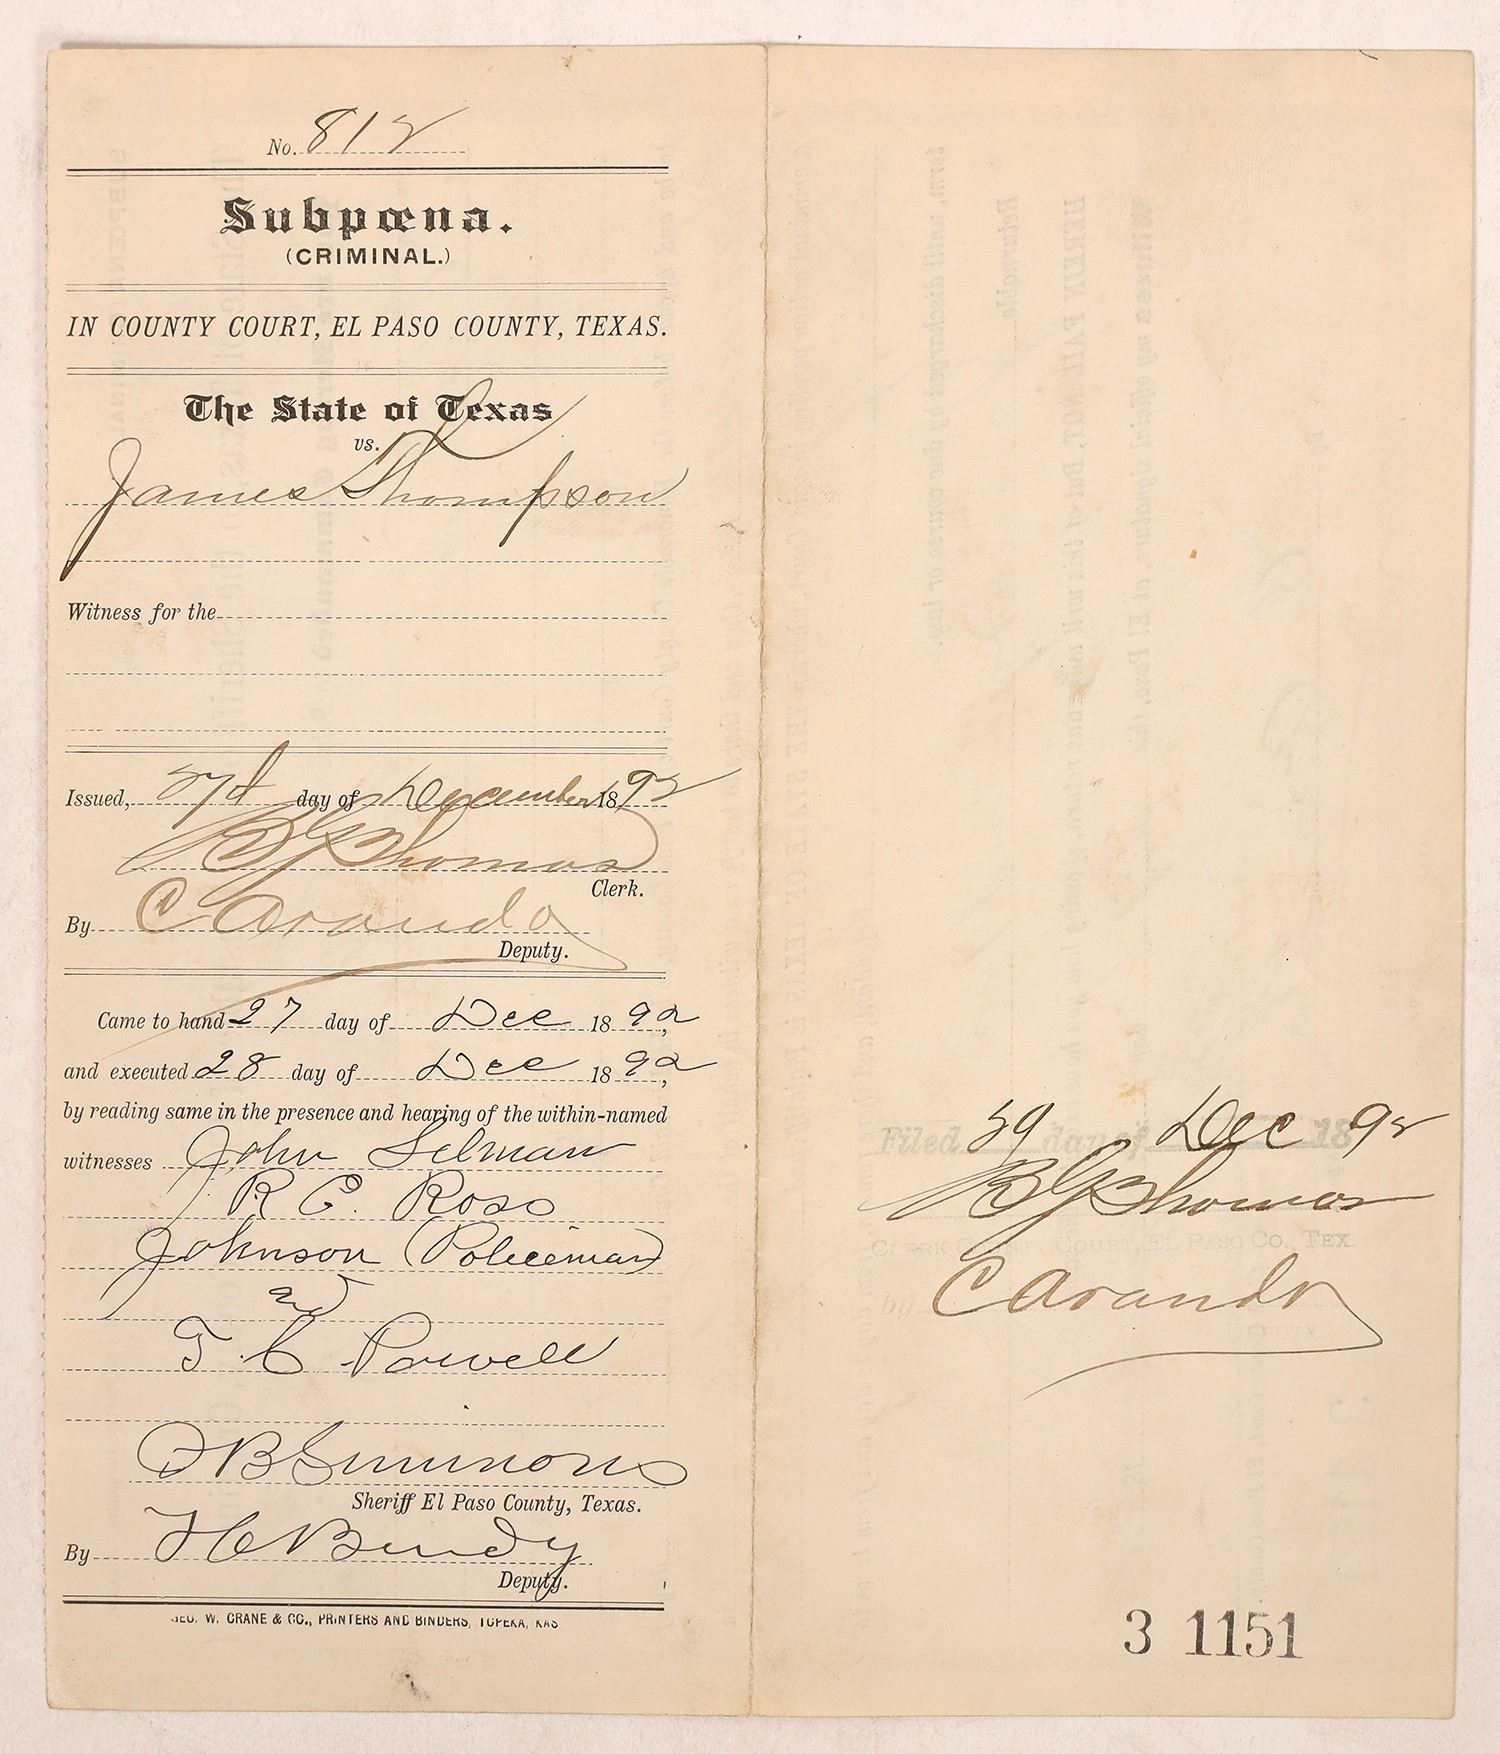 No. 812
Subpœna.
(CRIMINAL.)
IN COUNTY COURT, EL PASO COUNTY, TEXAS.
The State of Texas
vs.
James Thompson
Witness for the
Issued, 27d day of December 1892
B G Thomas
Clerk.
By C Aranda
Deputy.
Came to hand 27 day of Dec 1892,
and executed 28 day of Dec 1892,
by reading same in the presence and hearing of the within-named
witnesses John Selman
R C. Ross
Johnson (Policeman)
and
T. C Powell
F B Simmons
Sheriff El Paso County, Texas.
By H C Bundy
Deputy.
GEO. W. CRANE & CO., PRINTERS AND BINDERS, TOPEKA, KAS
Filed 29 day of Dec 1892
B G Thomas
CLERK COUNTY COURT, EL PASO CO, TEX.
by C Aranda
DEPUTY
3 1151